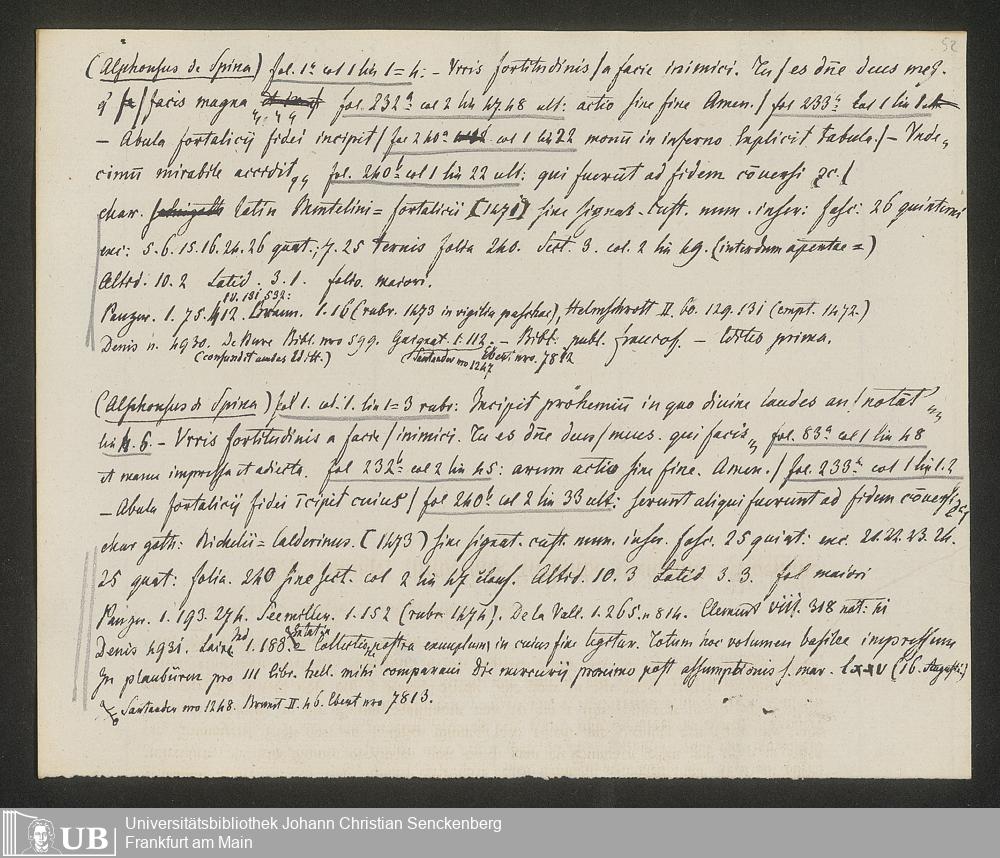 52
(Alphonsus de Spina) fol. 1ª col 1 lin 1=4: – Vrris fortitudinis / a facie inimici. Tu / es dñe deus meꝰ.
facis magna fol. 232ª col 2 lin 47.48 ult: actio sine fine Amen. / fol 233ª col 1 lin 1
– Abula fortalicij fidei incipit / fol 240ª col 1 lin 22 monu in inferno Explicit tabula. / – Vnde„
cimu mirabile accedit„ fol. 240ᵇ col 1 lin 22 ult: qui fuerut ad fidem coversi ꝛc. /
char. latin Mentelini= fortalicii [1471] sine signat. cust. num. inser: fasc: 26 quinterni
exc: 5.6.15.16.24.26 quat.; 7.25 ternis folia 240. Sect. 3. col. 2 lin 49. (interdum apertae =)
Altid. 10.2 Latid. 3.1. folio. maiori.
IV. 191,532:
Panzer. 1.75.412. Braun. 1.16 (rubr. 1473 in vigilia paschae), Helmschrott II. 60. 129. 131 (empt. 1472)
Denis n. 4930. De Bure Bibl. nro 599. Gaignat. 1.112. – Bibl. publ. francof. – Editio prima.
(confundit ambas Editt.) Santander nro 1247 Ebert nro. 7812
(Alphonsus de Spina) fol 1. col. 1. lin 1=3 rubr: Incipit prohemiu in quo divine laudes an / notat„
lin 4.5 – Vrris fortitudinis a facie / inimici. Tu es dñe deus / meus. qui facis„ fol. 83ª col 1 lin 48
et manu impressa et adiecta. fol 232ᵇ col 2 lin 45: arum actio sine fine. Amen. / fol. 233ª col 1 lin 1.2
– Abula fortalicij fidei icipit cuius / fol 240ᵇ col 2 lin 33 ult: ferunt aliqui fuerunt ad fidem coversi ꝛc
char goth: Richelii= Calderinus. [1473] sine signat. cust. num. inser. fasc. 25 quint: exc. 21.22.23.24.
25 quat: folia. 240 sine sect. col 2 lin 47 claus. Altid. 10.3 Latid 3.3. fol maiori
Panzer. 1.193.274. Seemiller. 1.152 (rubr 1474). De la Vall. 1.265. n 814. Clement VIII. 318 not: hi
Denis 4931. Laire Ind 1.188. Collectionis nostra exemplum, in cuius fine legitur. Totum hoc volumen basilee impressum
In plauburen pro III libr. hell. mihi comparavi Die mercurij proximo post assumptionis s. mar. lxxv (16. Augusti)
Santander nro 1248. Brunet II. 46. Ebert nro 7813.
UB
Universitätsbibliothek Johann Christian Senckenberg
Frankfurt am Main